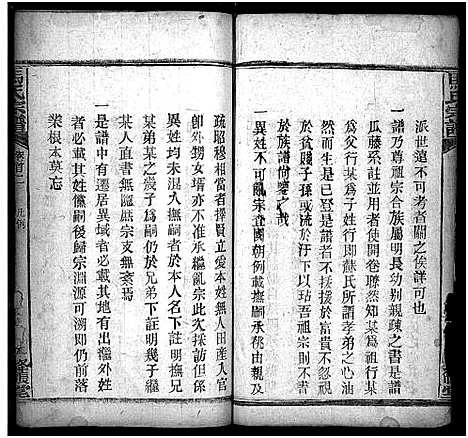 派世遠不可考者闕之俟詳可也
一譜乃尊祖宗合族屬明長幼別親疎之書是譜
瓜藤系註使開卷瞭然知某為祖行某為叔行某
為父行某為子姓行即蘇氏所謂孝弟之心油
然而生者已登是譜者不援攀於富貴不忽視
於貧賤子孫或流於汙下以玷吾祖宗則不書
於族譜尚鑒之哉
一異姓不可亂宗查國朝例載撫嗣承繼由親及
疏昭穆相當者擇賢立愛本姓無人田産入官
即外甥女壻亦不承繼亂宗此次採訪但係
異姓均未混入撫嗣者於本人名下註明撫
某弟某之幾子為嗣仍於兄弟下註明幾子繼
某人為嗣無庬庶宗支無紊焉
一是譜中有遷居異域者必載其地有出繼外姓
者必載其姓儻嗣後歸宗淵源可溯即仍前落
業根本莫忘
馬氏宗譜
卷首二
凡例